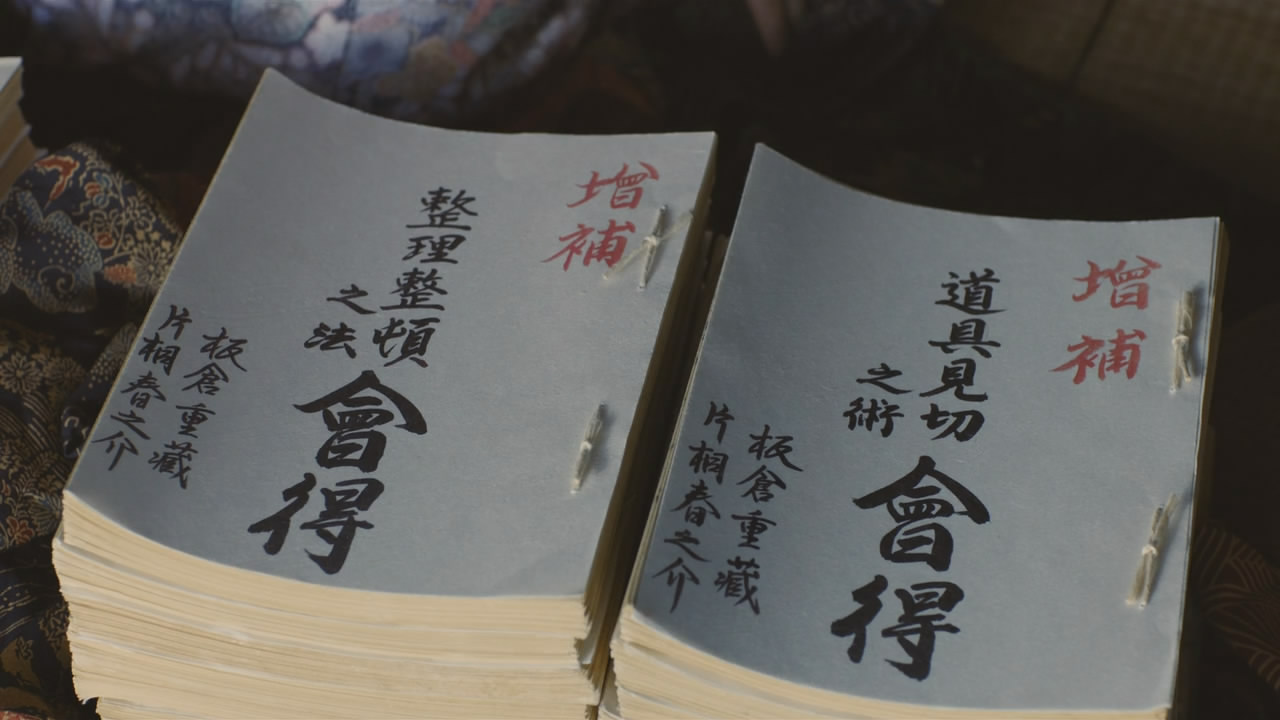 増補
整理整頓
之法
會得
板倉重藏
片桐春之介
増補
道具見切
之術
會得
板倉重藏
片桐春之介